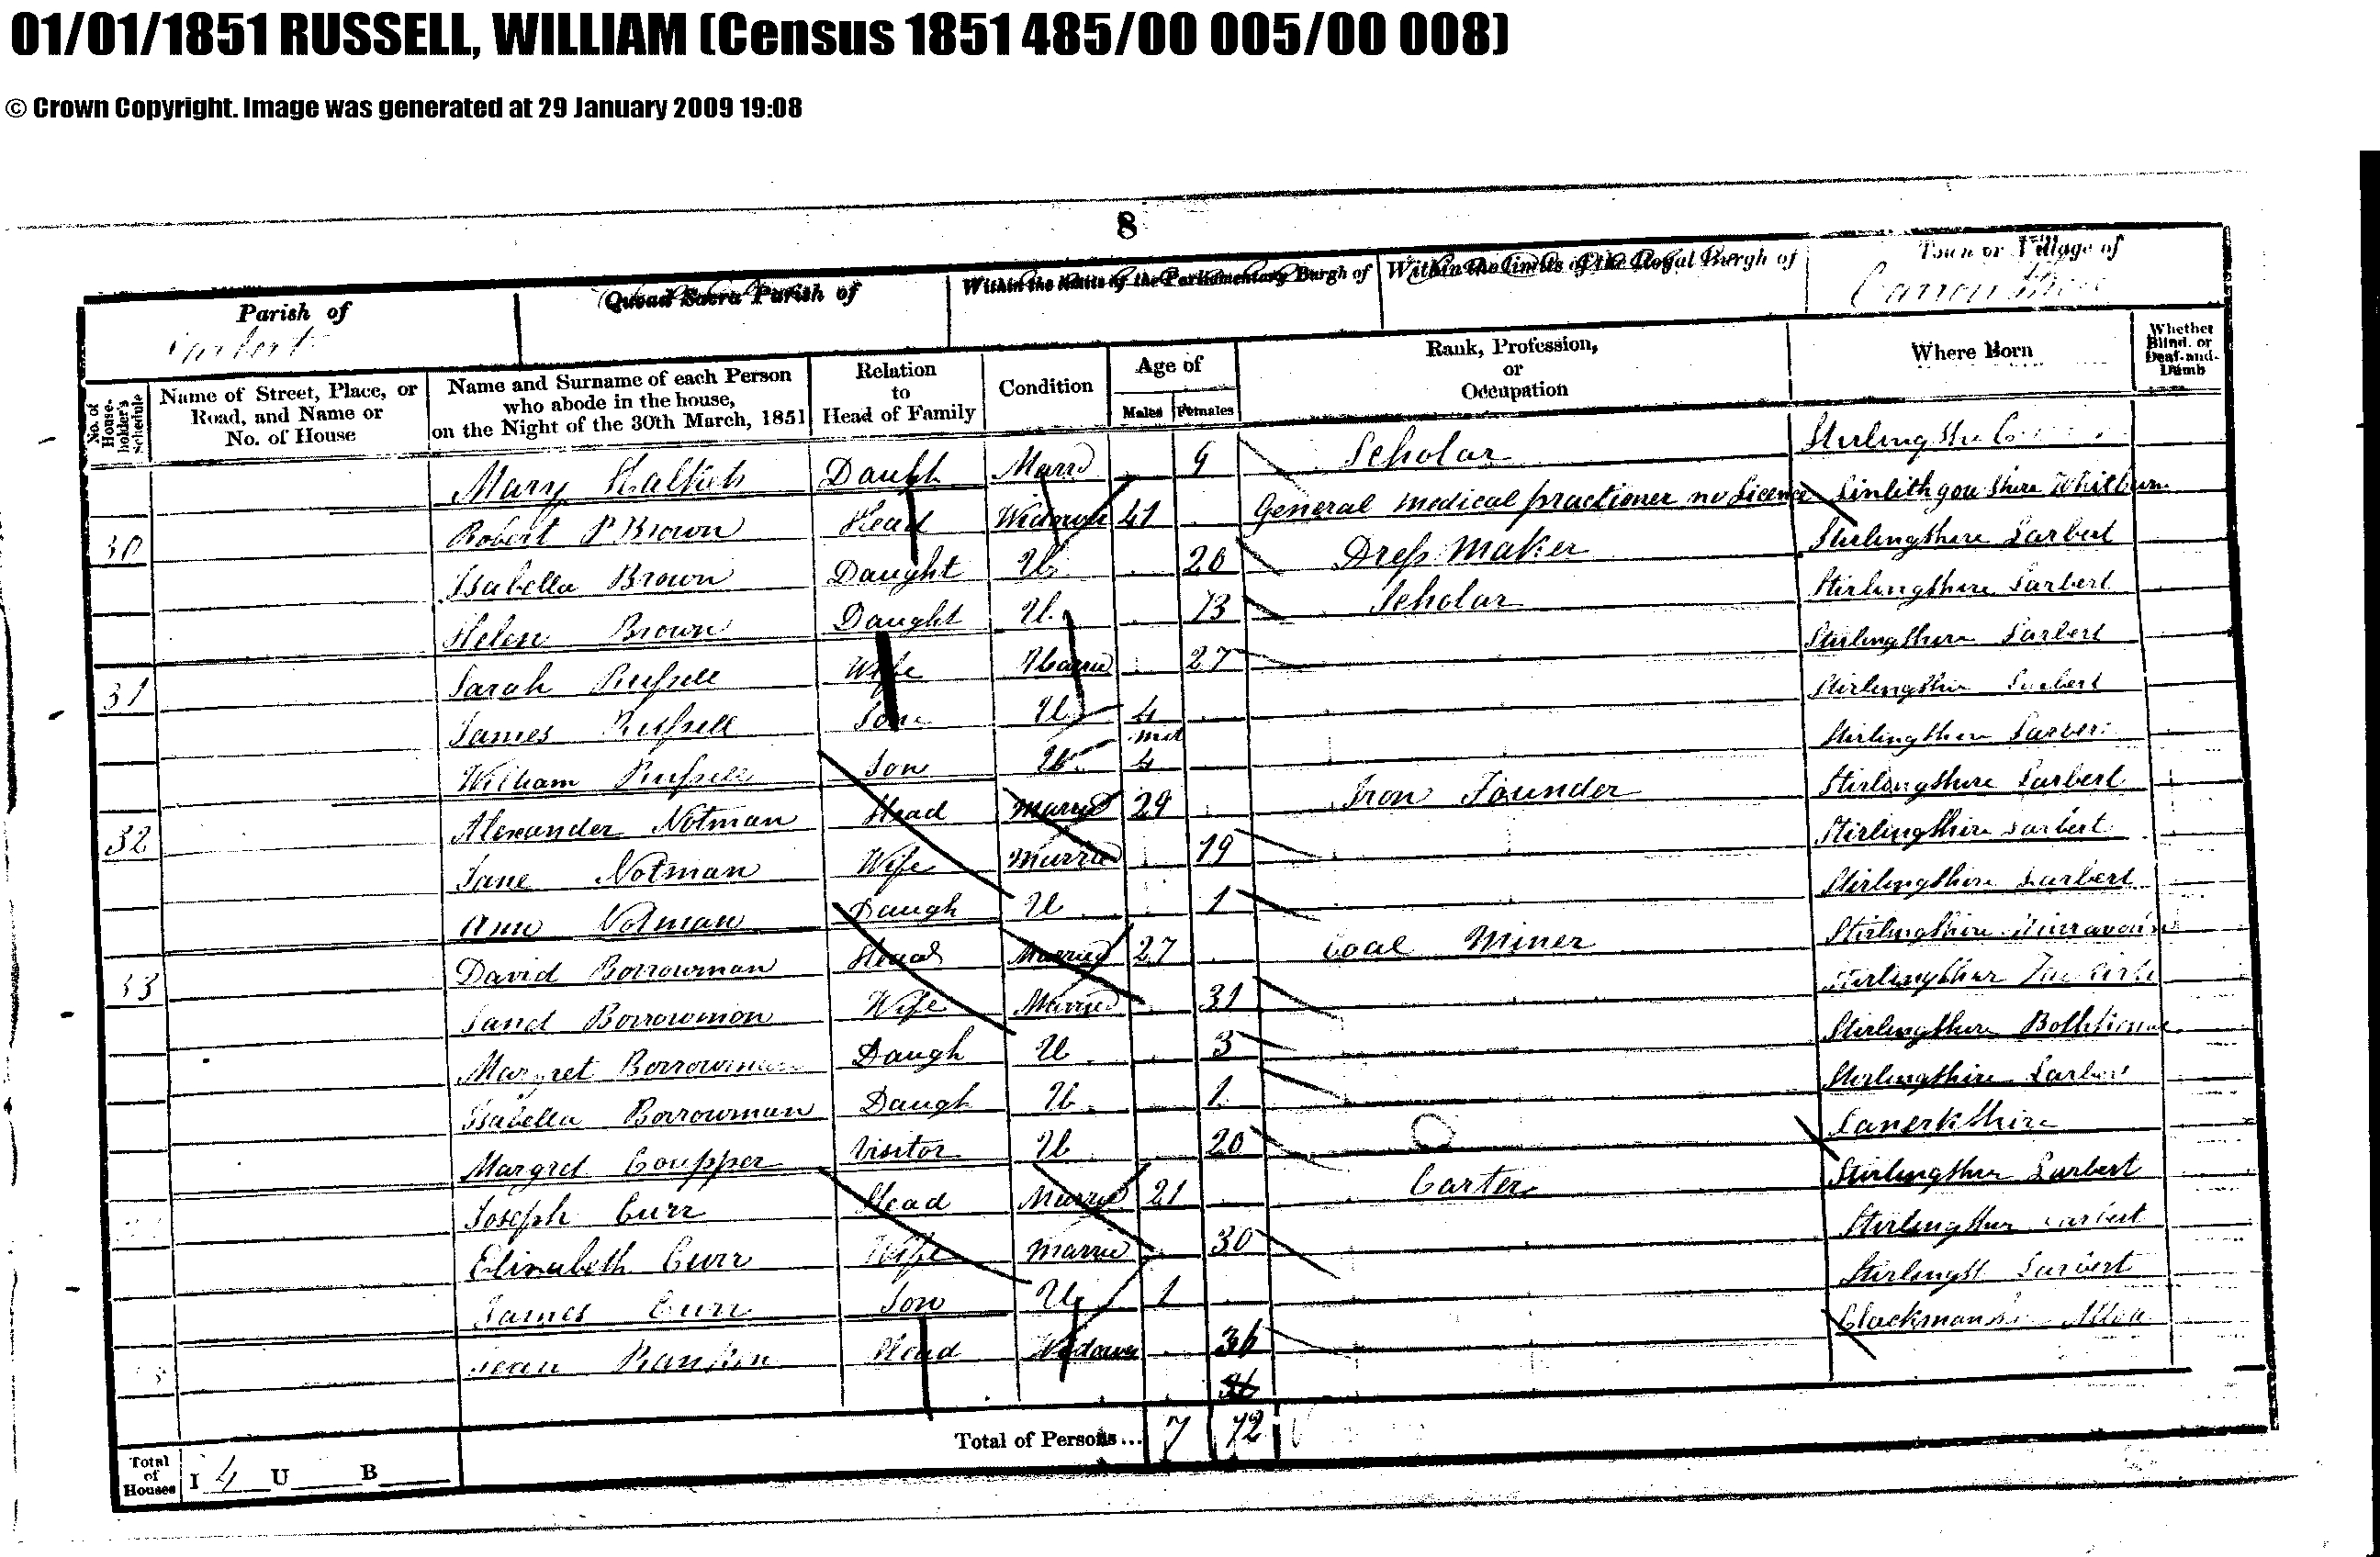 01/01/1851 RUSSELL, WILLIAM (Census 1851 485/00 005/00 008)
© Crown Copyright. Image was generated at 29 January 2009 19:08
8
Parish of Quoad Sacra Parish of Within the limits of the Parliamentary Burgh of Within the limits of the Royal Burgh of Town or Village of
Larbert Carron Shore
No. of House-holder's Schedule Name of Street, Place, or Road, and Name or No. of House Name and Surname of each Person who abode in the house, on the Night of the 30th March, 1851 Relation to Head of Family Condition Age of Males Females Rank, Profession, or Occupation Where Born Whether Blind, or Deaf-and-Dumb
Mary Daught 9 Scholar
30 Robert P Brown Head Widower 41 General medical practioner no Licence Linlithgou Shire Whitburn
Isabella Brown Daught U 20 Dress Maker Stirlingshire Larbert
Helen Brown Daught U 13 Scholar Stirlingshire Larbert
31 Sarah Russell Wife Marrie 27 Stirlingshire Larbert
James Russell Son U 4 Stirlingshire Larbert
William Russell Son U 4 Stirlingshire Larbert
32 Alexander Notman Head Married 29 Iron Founder Stirlingshire Larbert
Jane Notman Wife Marrie 19 Stirlingshire Larbert
Ann Notman Daugh U 1 Stirlingshire Larbert
33 David Borrowman Head Married 27 Coal Miner Stirlingshire
Borrowman Wife Married 31 Stirlingshire
Margret Borrowman Daugh U 3 Stirlingshire
Isabella Borrowman Daugh U 1 Stirlingshire Larbert
Margret Coupper Visitor U 20 Lanerkshire
Joseph Curr Head Married 21 Carter Stirlingshire Larbert
Elizabeth Curr Wife Marrie 30 Stirlingshire Larbert
James Curr Son U 1 Larbert
Jean Rankin Head Widower 36
Total of Persons... 7 12
Total of Houses I 4 U B